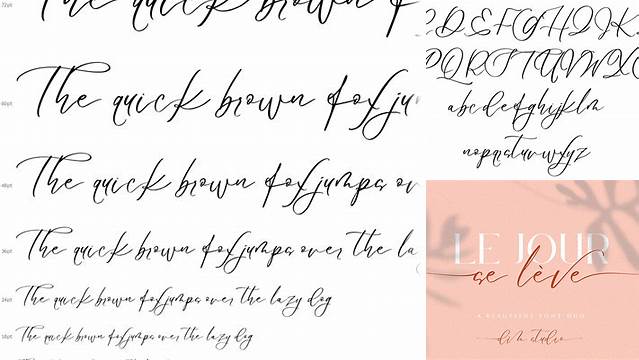 72pt
The quick brown f
60pt
The quick brown fox ju
48pt
The quick brown fox jumps ov
36pt
The quick brown fox jumps over the la
24pt
The quick brown fox jumps over the lazy dog
18pt
The quick brown fox jumps over the lazy dog
CDEFGHIJK
PQRSTUVWX
abcdefghijklm
nopqrstuvwxyz
LE JOUR
se lève
A BEAUTIFUL FONT DUO